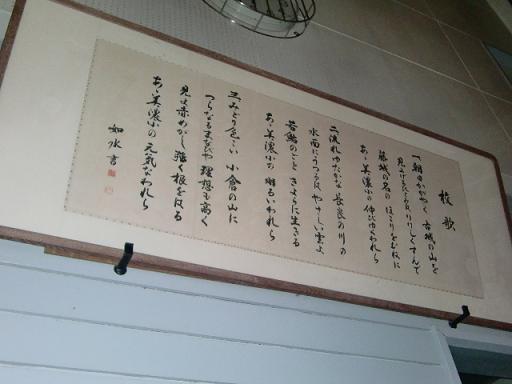 校歌
一、朝日かがやく 古城の山を
見よ
藤城の名の ほこり
あゝ美濃小の 伸びゆくわれら
二、流れゆたかな 長良の川の
水面にうつるは やさしい雲よ
若鮎のごと きよらに生きる
あゝ美濃小の 明るいわれら
三、みどり色こい 小倉の山に
つらなるまなびや 理想も高く
見よ赤めがし 強く根をはる
あゝ美濃小の 元気なわれら
如水書